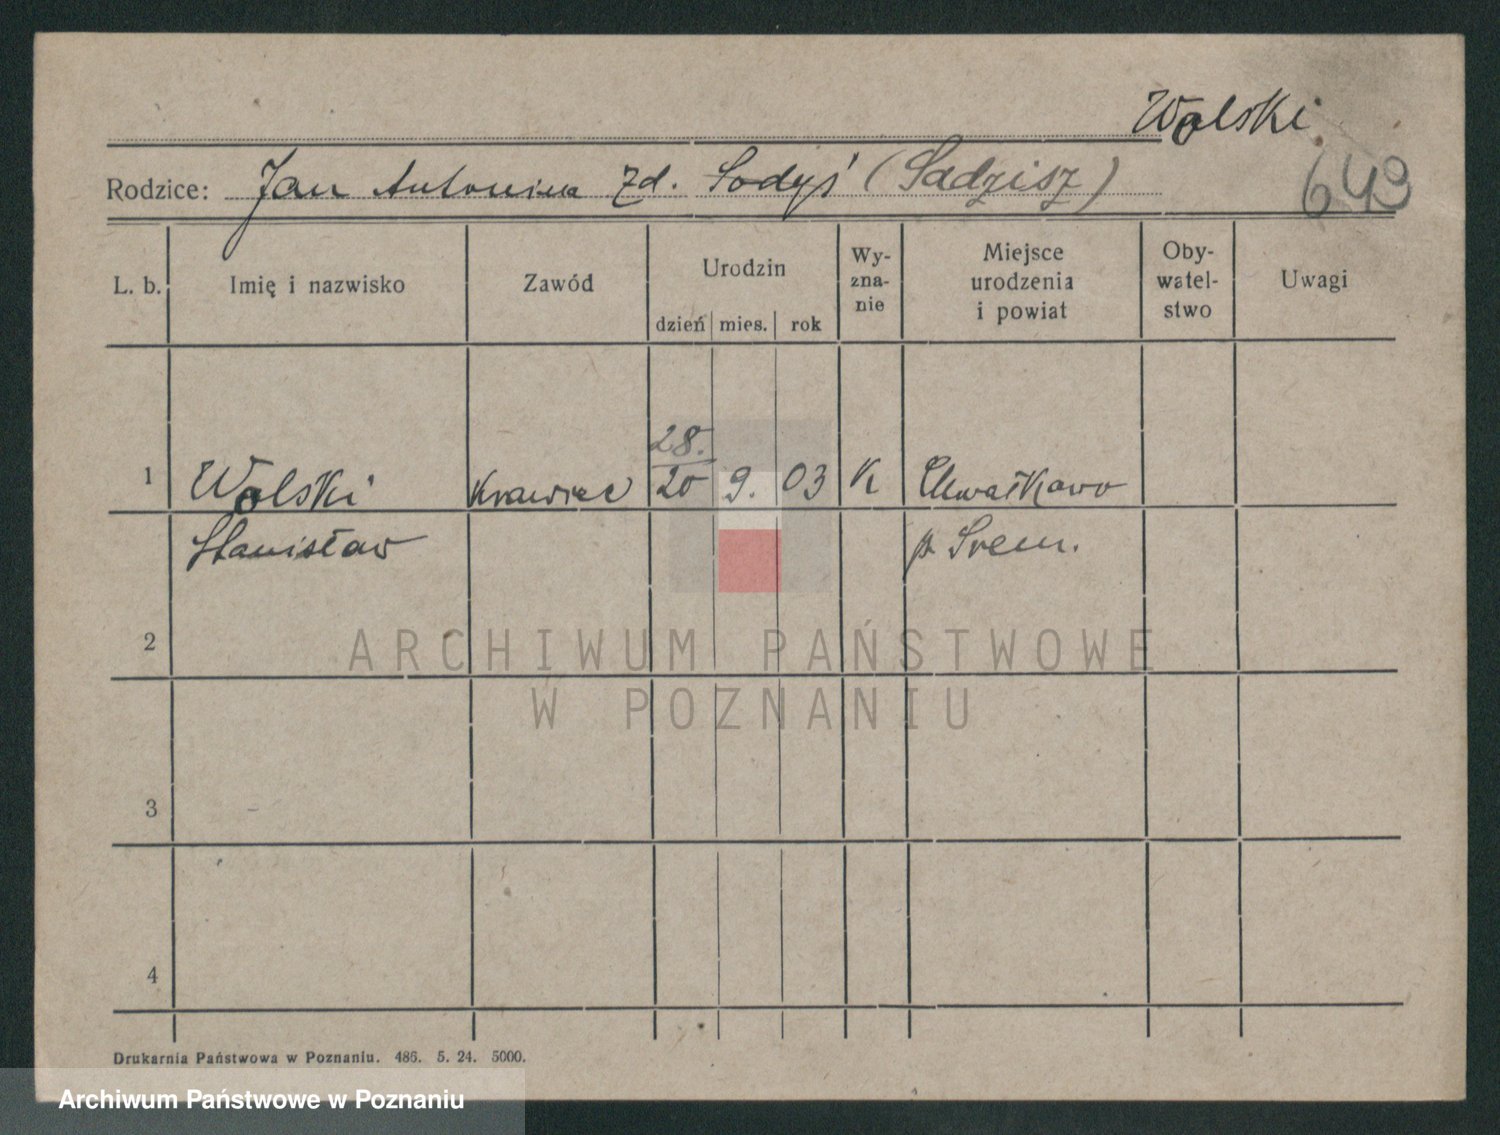 Wolski
Rodzice: Jan Antonina zd. Sodyś (Sadzisz)
643
L. b. Imię i nazwisko Zawód Urodzin dzień mies. rok Wy-zna-nie Miejsce urodzenia i powiat Oby-watel-stwo Uwagi
28.
1 Wolski Krawiec 20 9. 03 K Chwałkowo
Stanisław p. Śrem.
2
ARCHIWUM PAŃSTWOWE
W POZNANIU
3
4
Drukarnia Państwowa w Poznaniu. 486. 5. 24. 5000.
Archiwum Państwowe w Poznaniu